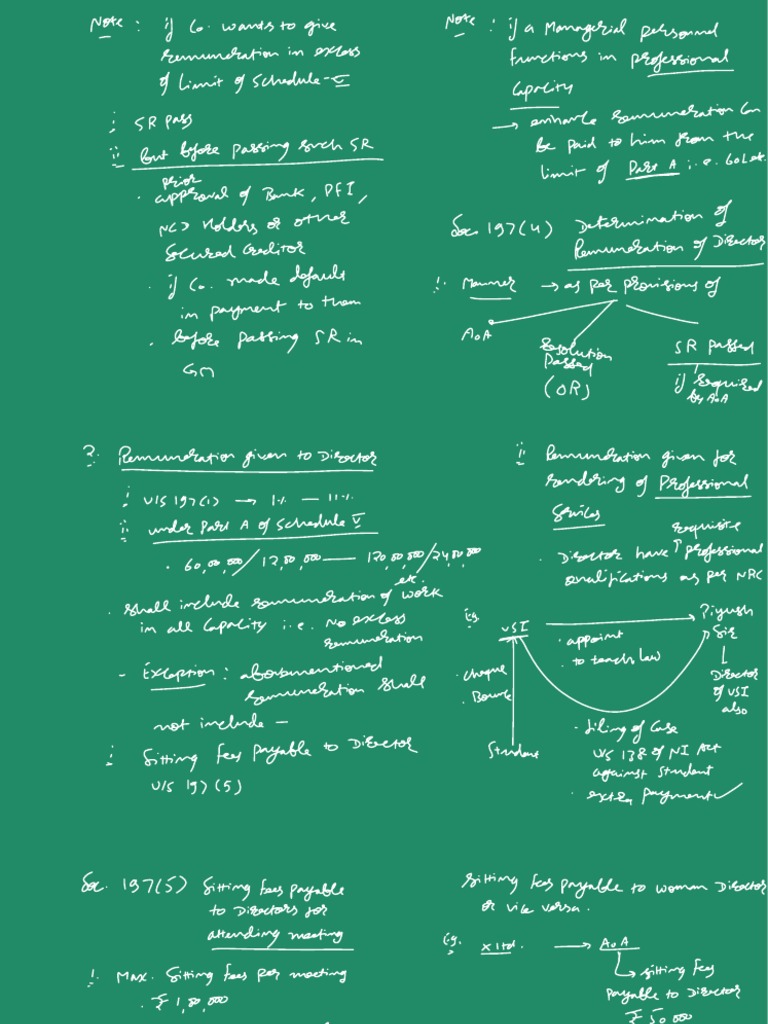 Note : if Co. wants to give
remuneration in excess
of limit of Schedule-V
i SR pass
ii but before passing such SR
prior
· approval of Bank, PFI,
NCD Holders or other
Secured Creditor
· if Co. made default
in payment to them
· before passing SR in
GM
Note : if a Managerial personnel
functions in professional
Capacity
→ enhance remuneration can
be paid to him from the
limit of Part A i.e. 60L etc.
Sec. 197(4) Determination of
Remuneration of Director
i. Manner → as per provisions of
AoA
Resolution
Passed
(OR)
SR passed
if required
by AoA
2. Remuneration given to Director
i u/s 197(1) → 1% — 11%
ii under Part A of Schedule V
· 60,00,000/12,00,000 — 120,00,000/24,00,000
etc.
· shall include remuneration of work
in all Capacity i.e. No excess
remuneration
- Exception : abovementioned
remuneration shall
not include —
i Sitting fees payable to Director
u/s 197(5)
ii Remuneration given for
rendering of Professional
Services
requisite
· Director have ↑ professional
qualifications as per NRC
Eg. VSI → Piyush
Sir
· appoint
· to teach law
Director
of VSI
also
· Cheque
· Bounce
Student
· filing of Case
u/s 138 of NI Act
against Student
· extra payment ✓
Sec. 197(5) Sitting fees payable
to Directors for
attending meeting
i. Max. Sitting fees per meeting
· ₹ 1,00,000
Sitting fees payable to woman Director
or vice versa.
Eg. X Ltd. → AoA
→ sitting fees
payable to Director
₹ 50 000